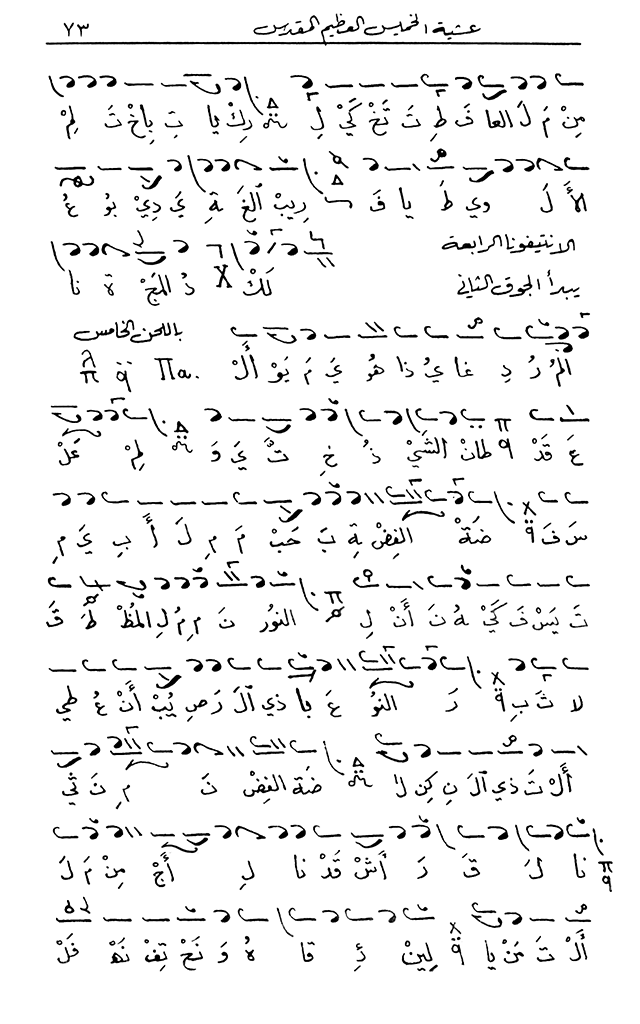 عشية الخميس العظيم المقدس ٧٣
مِنْ مَ لَ العا فَ طِ تَ تَخْ كَيْ لِ رِكْ يا تِ بِاخْ تَ لِمْ
الأَ لَ وي طَ يا فَ رِيبْ ٱلغَ بَةِ يَ دِيْ بُوْ عُ
الانتيفونا الرابعة
يبدأ الجوق الثاني لَكْ دُ المَجْ ةَ نا
باللحن الخامس
المُ رُ دِ غا يُ ذا هُو يَ مَ يَوْ أَلْ Πa.
عَ قَدْ طانْ الشَيْ ذُ خِ تُ يَ وَ لِمْ عَلْ
سَ فَ ضَةْ الفِضْ ةِ بَ حَبْ مَ مِ لَ أَ بِ يَ مِ
تَ يَسْ فَ كَيْ هُ نَ أَنْ لِ النُورْ نَ مِ مُ لِ المُظْ طَ قَ
لا ثَ بِ رَ النُو عَ با ذي ٱلَ رَصِ يُبْ أَنْ عُ طي
أَلْ تَ ذي ٱلَ نِ كِن لا ضَةَ الفِضْ نَ مِ نَ ثي
نا لَ قَ رَ أَشْ قَدْ نا لِ أَجْ مِنْ مَ لَ
أَلْ تَ مَنْ يا لِينْ ئِ قا هُ وَ نَحْ تِفْ نَهْ فَلْ